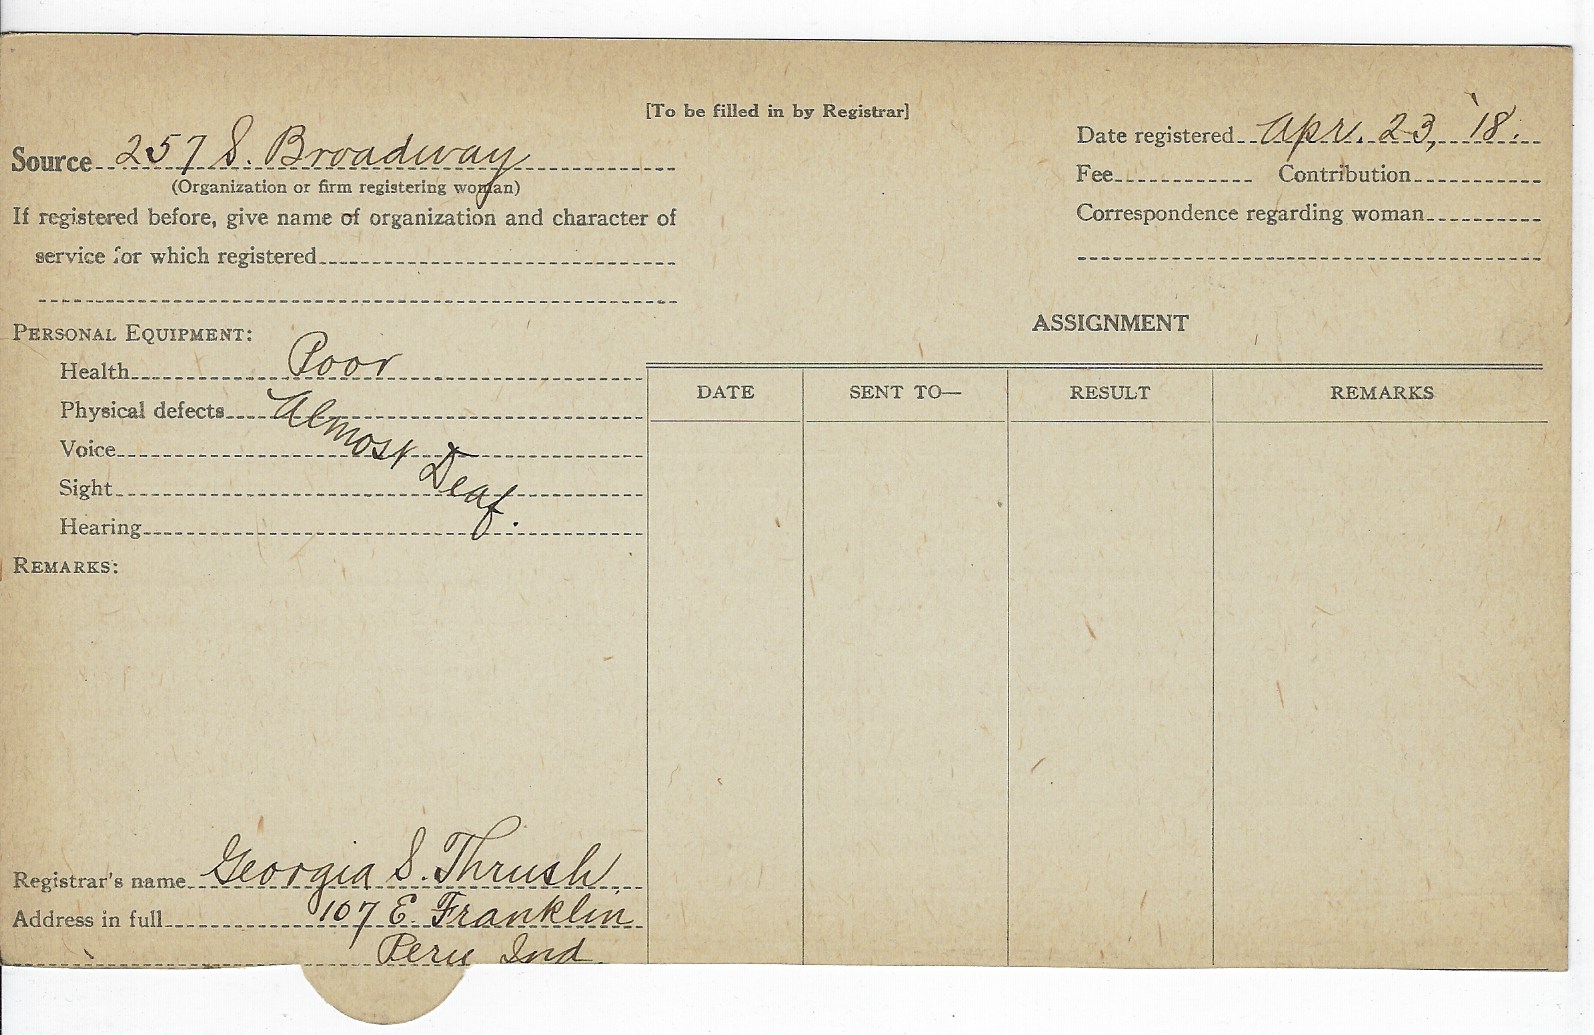 [To be filled in by Registrar]
Source 257 S. Broadway
(Organization or firm registering woman)
If registered before, give name of organization and character of
service for which registered
Date registered Apr. 23, '18.
Fee Contribution
Correspondence regarding woman
PERSONAL EQUIPMENT:
Health Poor
Physical defects Almost Deaf.
Voice
Sight
Hearing
REMARKS:
Registrar's name Georgia S. Thrush
Address in full 107 E. Franklin
Peru Ind.
ASSIGNMENT
DATE SENT TO— RESULT REMARKS